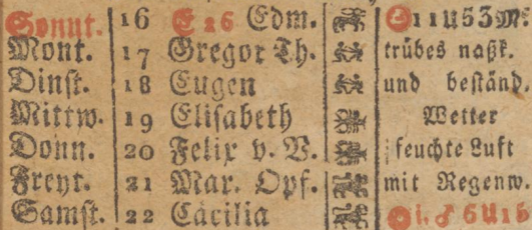 Sonnt. 16 E 26 Edm. 11 U 53 M.
Mont. 17 Gregor Th. trübes naßk.
Dinst. 18 Eugen und beständ.
Mittw. 19 Elisabeth Wetter
Donn. 20 Felix v. V. feuchte Luft
Freyt. 21 Mar. Opf. mit Regenw.
Samst. 22 Cäcilia ♂ 6 U 16